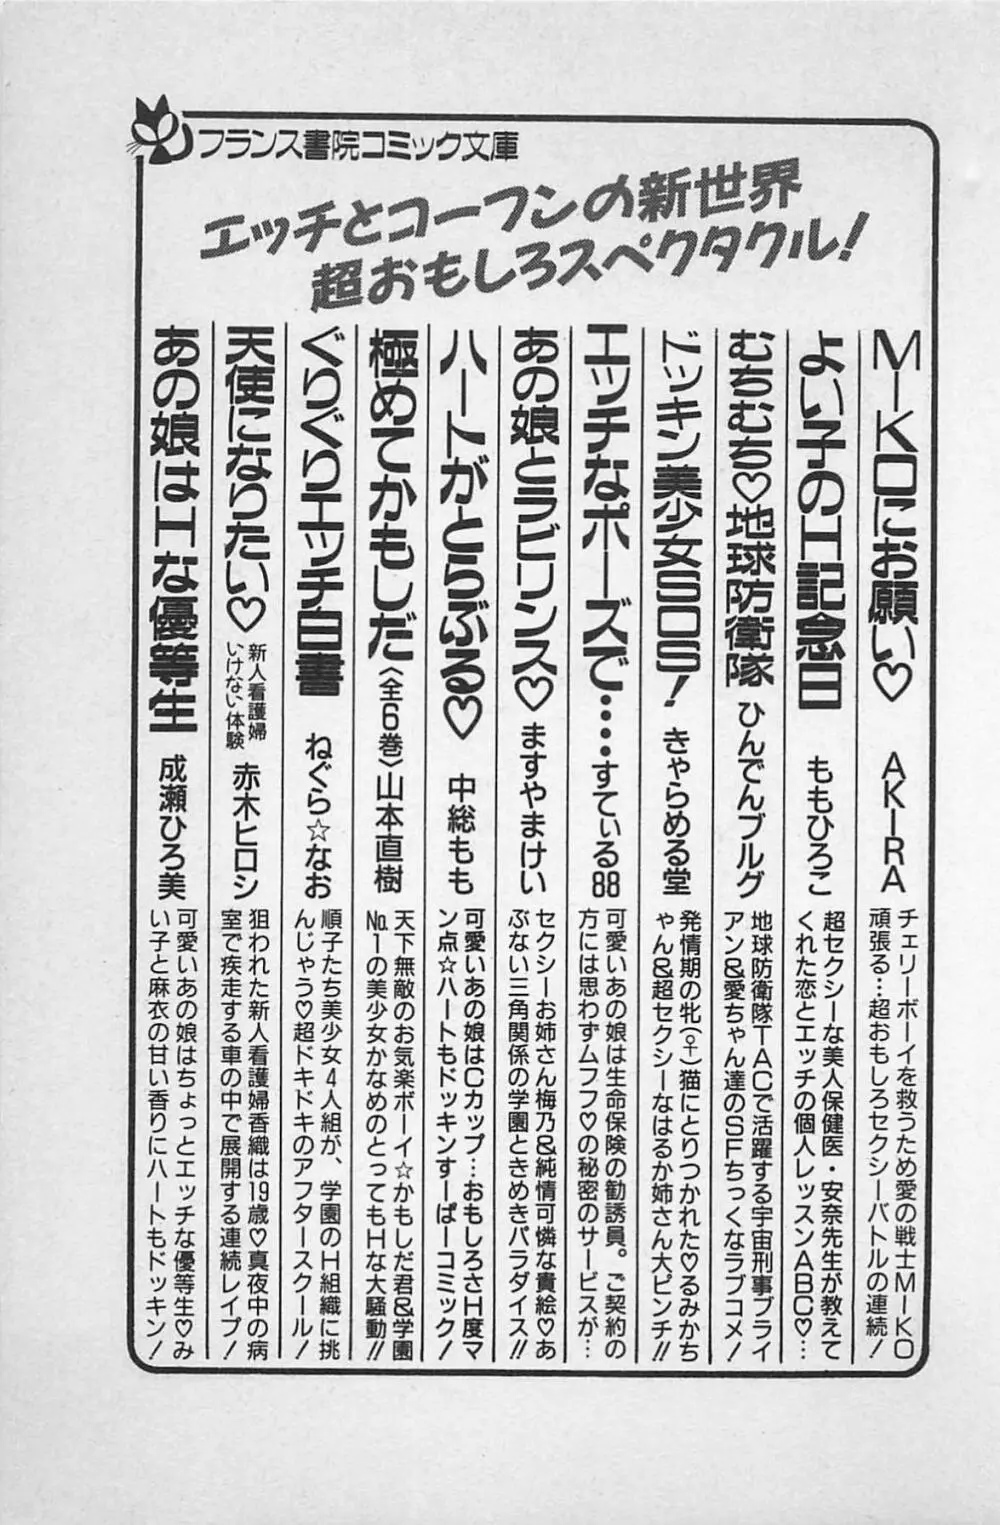 フランス書院コミック文庫
エッチとコーフンの新世界
超おもしろスペクタクル!
MIKOにお願い♡ AKIRA
チェリーボーイを救うため愛の戦士MIKO
頑張る…超おもしろセクシーバトルの連続!
よい子のH記念日 ももひろこ
超セクシーな美人保健医・安奈先生が教えて
くれた恋とエッチの個人レッスンABC♡…
むちむち♡地球防衛隊 ひんでんブルグ
地球防衛隊TACで活躍する宇宙刑事ブライ
アン&愛ちゃん達のSFちっくなラブコメ!
ドッキン美少女SOS! きゃらめる堂
発情期の牝(♀)猫にとりつかれた♡るみかち
ゃん&超セクシーなはるか姉さん大ピンチ!!
エッチなポーズで…… すてぃる88
可愛いあの娘は生命保険の勧誘員。ご契約の
方には思わずムフフ♡の秘密のサービスが…
あの娘とラビリンス♡ ますやまけい
セクシーお姉さん梅乃&純情可憐な貴絵♡あ
ぶない三角関係の学園ときめきパラダイス!!
ハートがとらぶる♡ 中総もも
可愛いあの娘はCカップ…おもしろさH度マ
ン点☆ハートもドッキンすーぱーコミック!
極めてかもしだ〈全6巻〉 山本直樹
天下無敵のお気楽ボーイ☆かもしだ君&学園
No.1の美少女かなめのとってもHな大騒動!!
ぐりぐりエッチ白書 ねぐら☆なお
順子たち美少女4人組が、学園のH組織に挑
んじゃう♡超ドキドキのアフタースクール!
天使になりたい♡ 新人看護婦
いけない体験 赤木ヒロシ
狙われた新人看護婦香織は19歳♡真夜中の病
室で疾走する車の中で展開する連続レイプ!
あの娘はHな優等生 成瀬ひろ美
可愛いあの娘はちょっとエッチな優等生♡み
い子と麻衣の甘い香りにハートもドッキン!